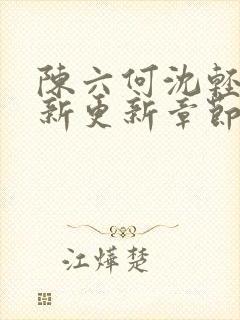 陳六何沈輕
新更新章節
江燁楚